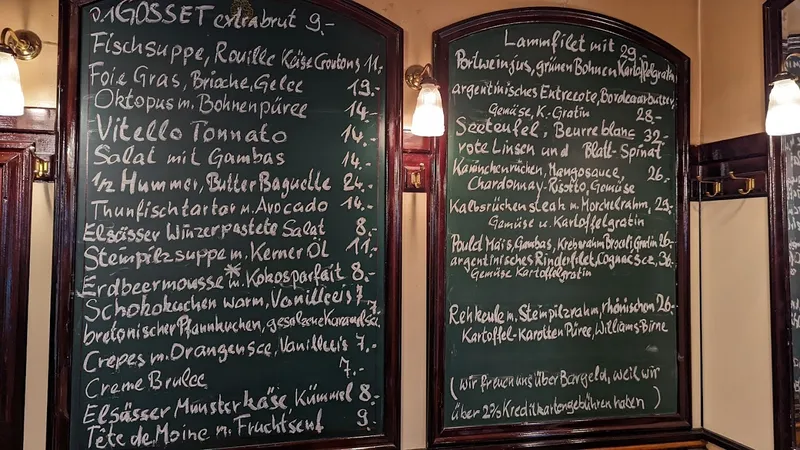 0.1 GOSSET extra brut 9.-
Fischsuppe, Rouille Käse Croutons 11.-
Foie Gras, Brioche, Gelee 19.-
Oktopus m. Bohnenpüree 14.-
Vitello Tonnato 14.-
Salat mit Gambas 14.-
1/2 Hummer, Butter Baguette 24.-
Thunfischtartar m. Avocado 14.-
Elsässer Winzerpastete Salat 8.-
Steinpilzsuppe m. Kerner Öl 11.-
Erdbeermousse m. Kokosparfait 8.-
Schokokuchen warm, Vanilleeis 7.-
bretonischer Pfannkuchen, gesalzene 7.-
Crepes m. Orangensce, Vanilleeis 7.-
Creme Brulee 7.-
Elsässer Munsterkäse Kümmel 8.-
Tête de Moine m. Fruchtsenf 9.-
Lammfilet mit 29.-
Portweinjus, grünen Bohnen Kartoffelgratin
argentinisches Entrecote, Bordeauxbutter,
Gemüse, K.-Gratin 28.-
Seeteufel, Beurre blanc 32.-
rote Linsen und Blatt-Spinat
Kaninchenrücken, Mangosauce, 26.-
Chardonnay-Risotto, Gemüse
Kalbsrückensteak m. Morchelrahm, 29.-
Gemüse u. Kartoffelgratin
Gambas, Krebsrahm Brocoli Gratin 26.-
argentinisches Rinderfilet, Cognacsce, 36.-
Gemüse Kartoffelgratin
Rehkeule m. Steinpilzrahm, rhönischem 26.-
Kartoffel-Karotten Püree, Williams-Birne
(wir freuen uns über Bargeld, weil wir
über 2% Kreditkartengebühren haben)